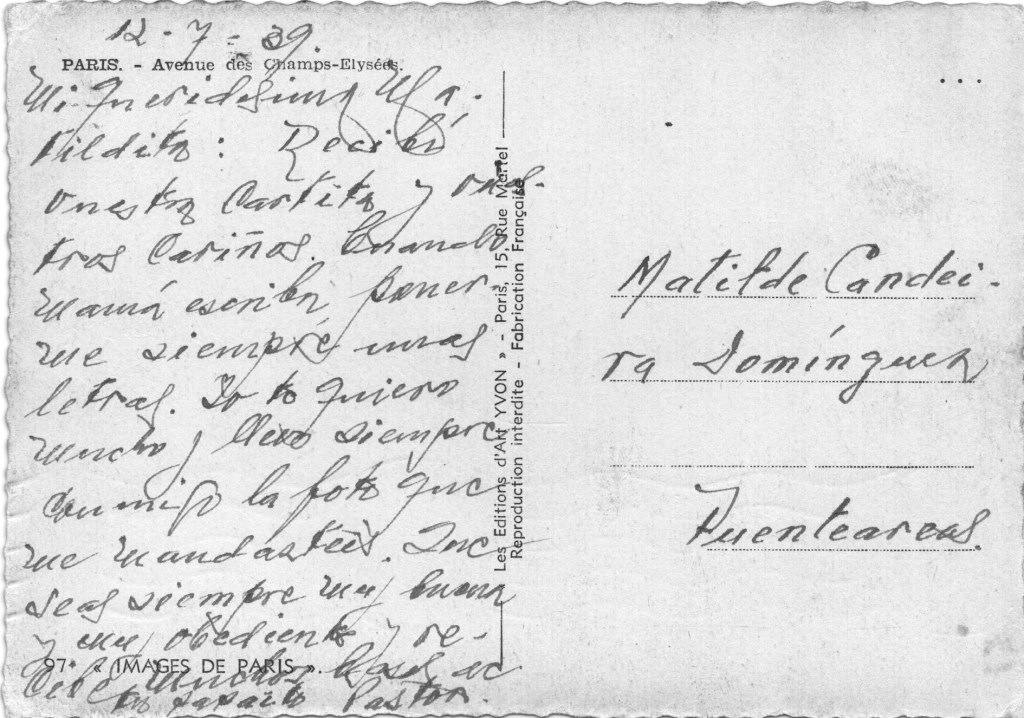 12-7-39.
PARIS. - Avenue des Champs-Elysées.
Mi queridisima Ma-
tildita: Recibí
vuestra Cartita y vues-
tros Cariños. Cuando
Mamá escriba poner-
me siempre unas
letras. Yo te quiero
mucho y llevo siempre
conmigo la foto que
me mandasteis. Que
seas siempre muy buena
y muy obediente y re-
97. « IMAGES DE PARIS »
cibe muchos besos de
tu papaito Pastor.
Les Editions d'Art YVON » - Paris, 15, Rue Martel
Reproduction interdite - Fabrication Française
...
Matilde Candei-
ra Domínguez
Puenteareas.